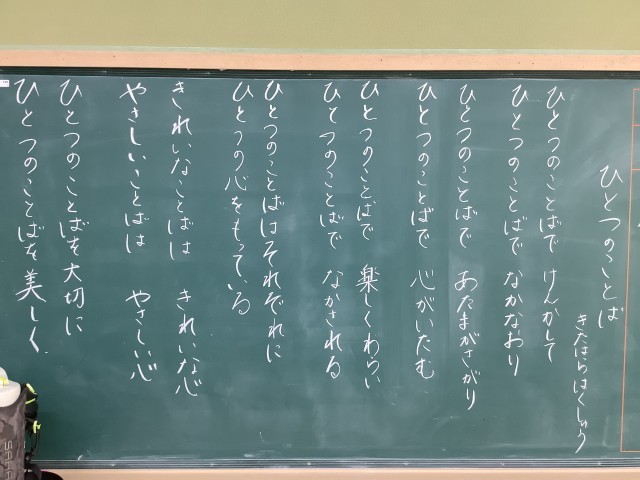 ひとつのことば
きたはらはくしゅう
ひとつのことばで けんかして
ひとつのことばで なかなおり
ひとつのことばで あたまがさがり
ひとつのことばで 心がいたむ
ひとつのことばで 楽しくわらい
ひとつのことばで なかされる
ひとつのことばはそれぞれに
ひとつの心をもっている
きれいなことばは きれいな心
やさしいことばは やさしい心
ひとつのことばを大切に
ひとつのことばを美しく